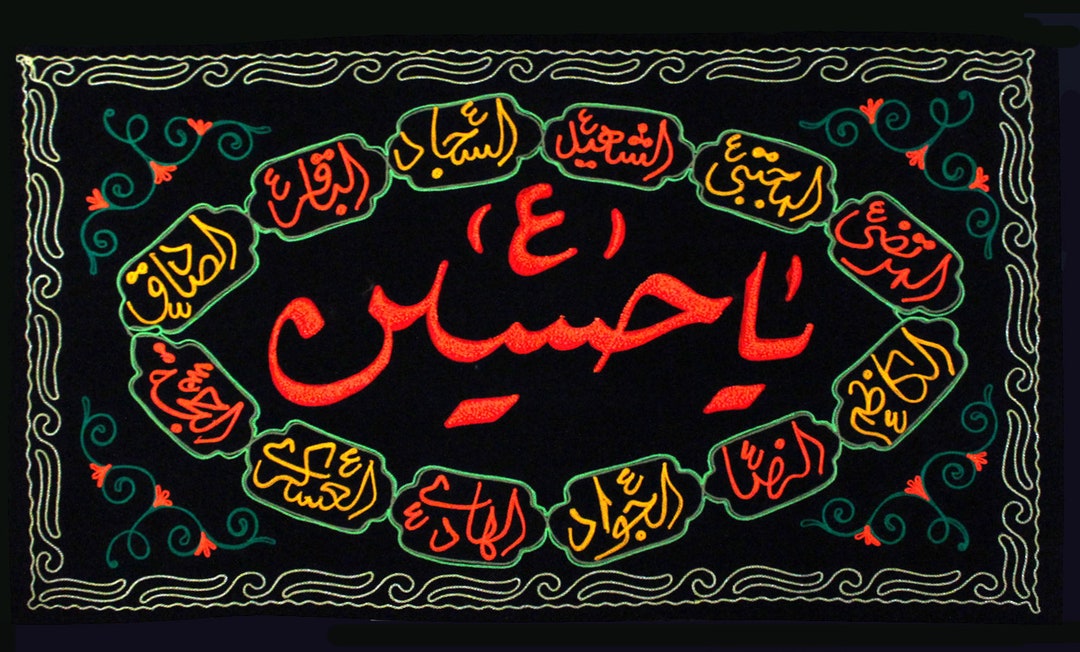 المرتضی ع
المجتبی ع
الشهید ع
السجاد ع
الباقر ع
الصادق ع
(ع)
یا حسین
الکاظم ع
الرضا ع
الجواد ع
الهادی ع
العسکری ع
الحجة عج